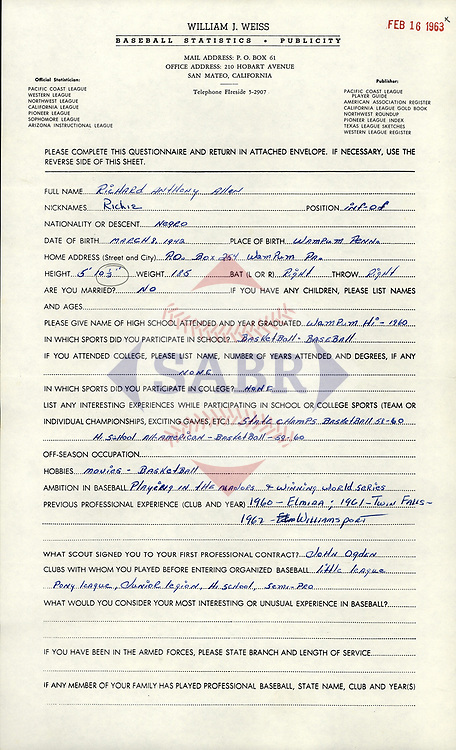 WILLIAM J. WEISS
FEB 16 1963
BASEBALL STATISTICS • PUBLICITY
MAIL ADDRESS: P. O. BOX 61
OFFICE ADDRESS: 210 HOBART AVENUE
SAN MATEO, CALIFORNIA
Telephone FIreside 5-2907
Official Statistician:
PACIFIC COAST LEAGUE
WESTERN LEAGUE
NORTHWEST LEAGUE
CALIFORNIA LEAGUE
PIONEER LEAGUE
SOPHOMORE LEAGUE
ARIZONA INSTRUCTIONAL LEAGUE
Publisher:
PACIFIC COAST LEAGUE
PLAYER GUIDE
AMERICAN ASSOCIATION REGISTER
CALIFORNIA LEAGUE GOLD BOOK
NORTHWEST ROUNDUP
PIONEER LEAGUE INDEX
TEXAS LEAGUE SKETCHES
WESTERN LEAGUE REGISTER
PLEASE COMPLETE THIS QUESTIONNAIRE AND RETURN IN ATTACHED ENVELOPE. IF NECESSARY, USE THE
REVERSE SIDE OF THIS SHEET.
FULL NAME Richard Anthony Allen
NICKNAMES Richie POSITION inf-of
NATIONALITY OR DESCENT Negro
DATE OF BIRTH March 8, 1942 PLACE OF BIRTH Wampum Penna.
HOME ADDRESS (Street and City) P.O. Box 254 Wampum Pa.
HEIGHT 5' 10½" WEIGHT 185 BAT (L OR R) Right THROW Right
ARE YOU MARRIED? No IF YOU HAVE ANY CHILDREN, PLEASE LIST NAMES
AND AGES
PLEASE GIVE NAME OF HIGH SCHOOL ATTENDED AND YEAR GRADUATED Wampum Hi - 1960
IN WHICH SPORTS DID YOU PARTICIPATE IN SCHOOL? Basketball - Baseball
IF YOU ATTENDED COLLEGE, PLEASE LIST NAME, NUMBER OF YEARS ATTENDED AND DEGREES, IF ANY
None
IN WHICH SPORTS DID YOU PARTICIPATE IN COLLEGE? None
LIST ANY INTERESTING EXPERIENCES WHILE PARTICIPATING IN SCHOOL OR COLLEGE SPORTS (TEAM OR
INDIVIDUAL CHAMPIONSHIPS, EXCITING GAMES, ETC.) State Champs Basketball 59-60
H. School All-American - Basketball - 59-60
OFF-SEASON OCCUPATION
HOBBIES Movies - Basketball
AMBITION IN BASEBALL Playing in the majors & winning World Series
PREVIOUS PROFESSIONAL EXPERIENCE (CLUB AND YEAR) 1960 - Elmira; 1961 - Twin Falls -
1962 - Williamsport
WHAT SCOUT SIGNED YOU TO YOUR FIRST PROFESSIONAL CONTRACT? John Ogden
CLUBS WITH WHOM YOU PLAYED BEFORE ENTERING ORGANIZED BASEBALL Little League
Pony League, Junior Legion, Hi School, Semi-Pro
WHAT WOULD YOU CONSIDER YOUR MOST INTERESTING OR UNUSUAL EXPERIENCE IN BASEBALL?
IF YOU HAVE BEEN IN THE ARMED FORCES, PLEASE STATE BRANCH AND LENGTH OF SERVICE
IF ANY MEMBER OF YOUR FAMILY HAS PLAYED PROFESSIONAL BASEBALL, STATE NAME, CLUB AND YEAR(S)
SABR